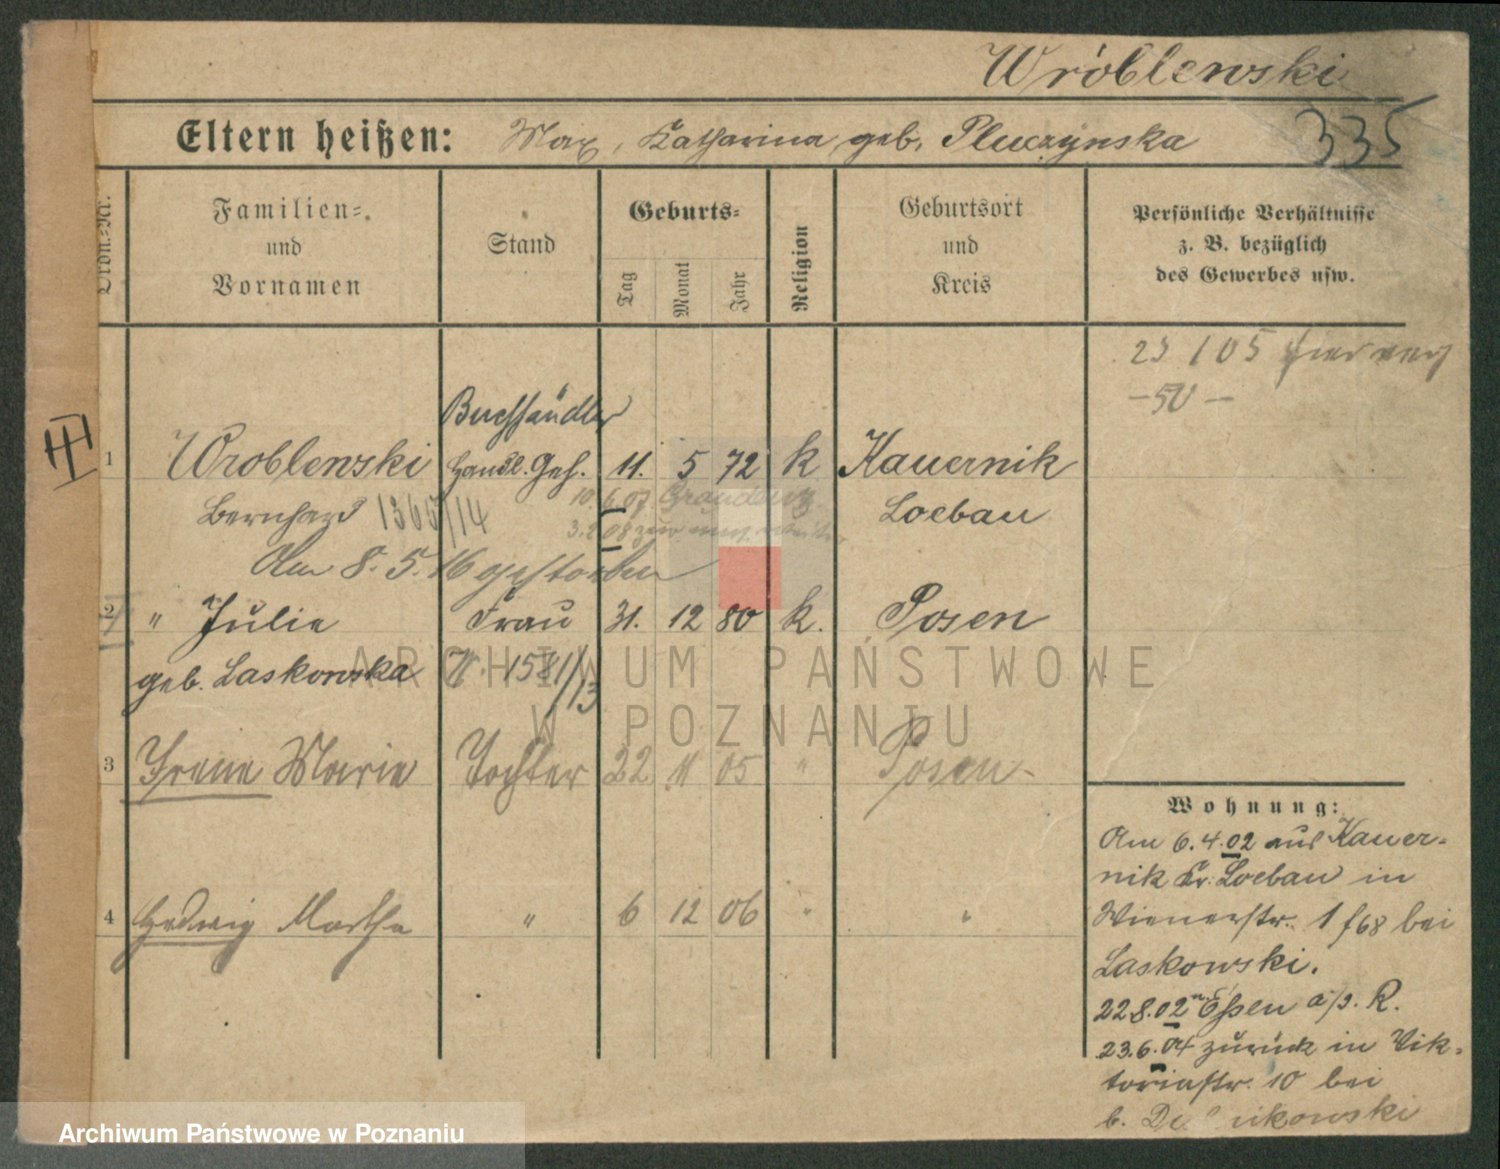 Wróblewski
335
Eltern heißen: Max, Katharina, geb. Pluczynska
Ordn.-Nr.
Familien-
und
Vornamen
Stand
Geburts-
Tag
Monat
Jahr
Religion
Geburtsort
und
Kreis
Persönliche Verhältnisse
z. B. bezüglich
des Gewerbes usw.
105
Buchhändler
III
1 Wroblewski Handl. Geh. 11. 5 72 k Kauernik
Bernhard 1365/14 10. 6. 07 Graudenz Loebau
3. 2 08 zur
Am 8. 5. 16 gestorben
2 " Julie Frau 31. 12 80 k. Posen
geb. Laskowska 1581/13
3 Irene Marie Tochter 22 11 05 " Posen
4 Hedwig Martha " 6 12 06 " "
Wohnung:
Am 6. 4. 02 aus Kauer-
nik Kr. Loebau in
Wienerstr. 1 bei
Laskowski.
22 8. 02 n. Essen a/d. R.
23. 6. 04 zurück in Vik-
toriastr. 10 bei
ARCHIWUM PAŃSTWOWE
W POZNANIU
Archiwum Państwowe w Poznaniu